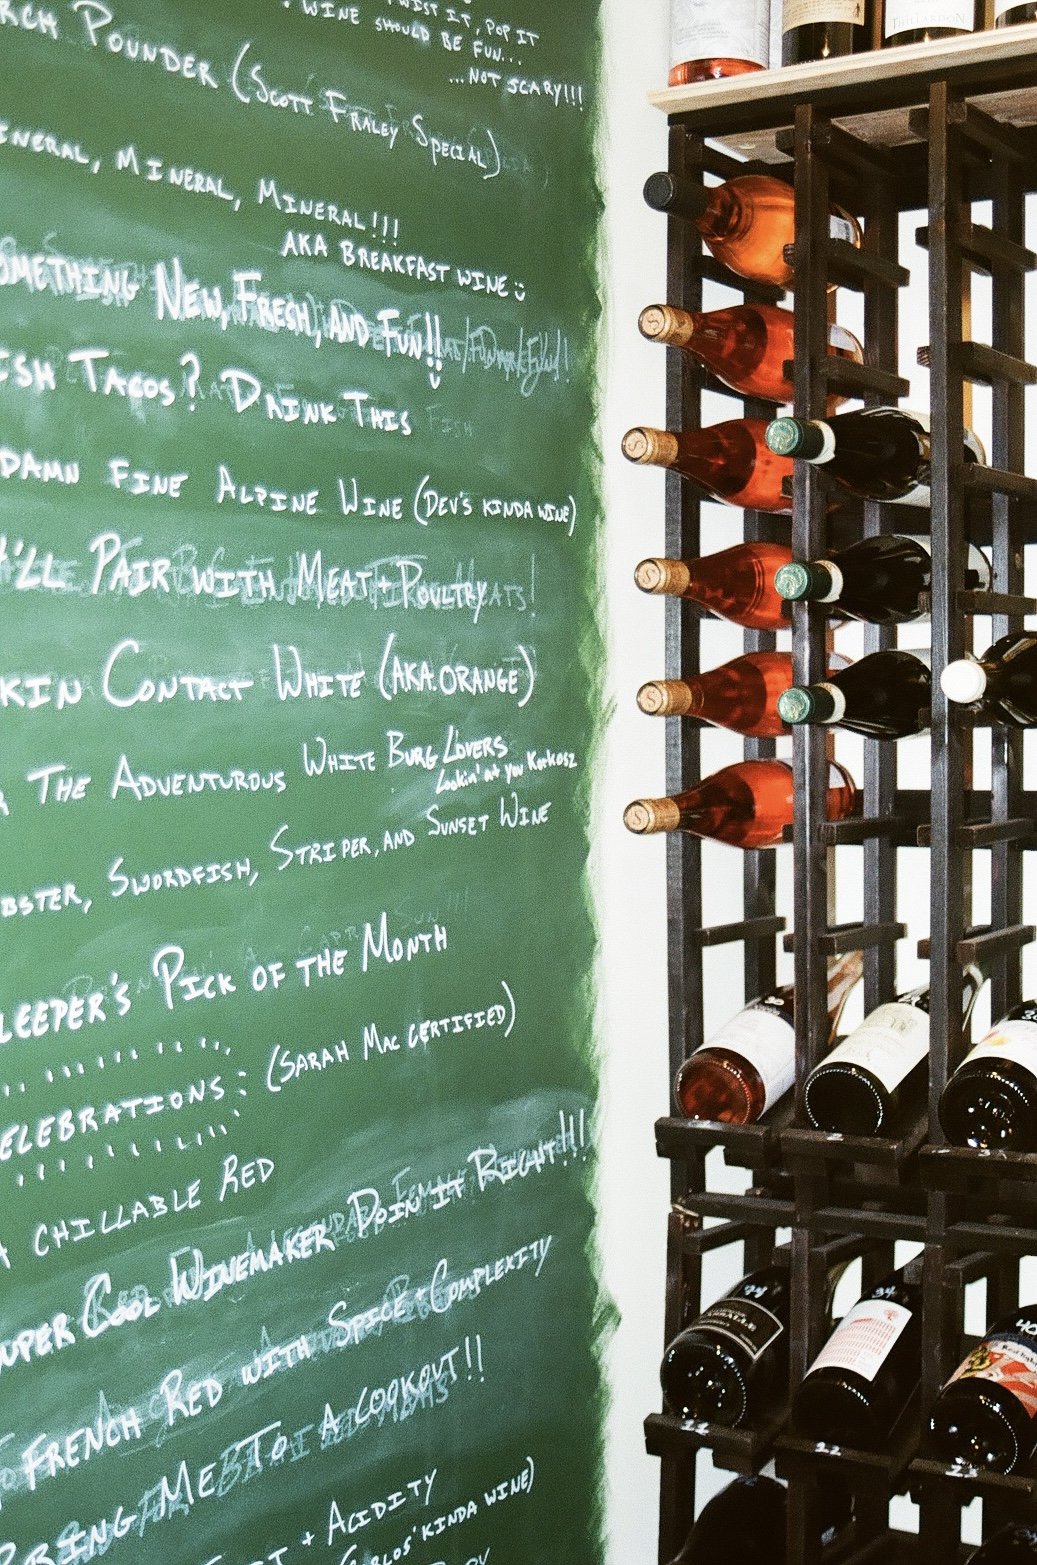 TWIST IT, POP IT
WINE SHOULD BE FUN...
...NOT SCARY!!!
RCH POUNDER (SCOTT FRALEY SPECIAL)
INERAL, MINERAL, MINERAL!!!
AKA BREAKFAST WINE :)
OMETHING NEW, FRESH, AND FUN!!
ISH TACOS? DRINK THIS
DAMN FINE ALPINE WINE (DEV'S KINDA WINE)
'LL PAIR WITH MEAT + POULTRY
KIN CONTACT WHITE (AKA: ORANGE)
THE ADVENTUROUS WHITE BURG LOVERS
Lookin' at you Korkosz
BSTER, SWORDFISH, STRIPER, AND SUNSET WINE
LEEPER'S PICK OF THE MONTH
ELEBRATIONS (SARAH MAC CERTIFIED)
A CHILLABLE RED
UPER COOL WINEMAKER DOIN IT RIGHT!!!
FRENCH RED WITH SPICE + COMPLEXITY
RING ME TO A COOKOUT!!
+ ACIDITY
CARLOS' KINDA WINE)
34
22
22
23